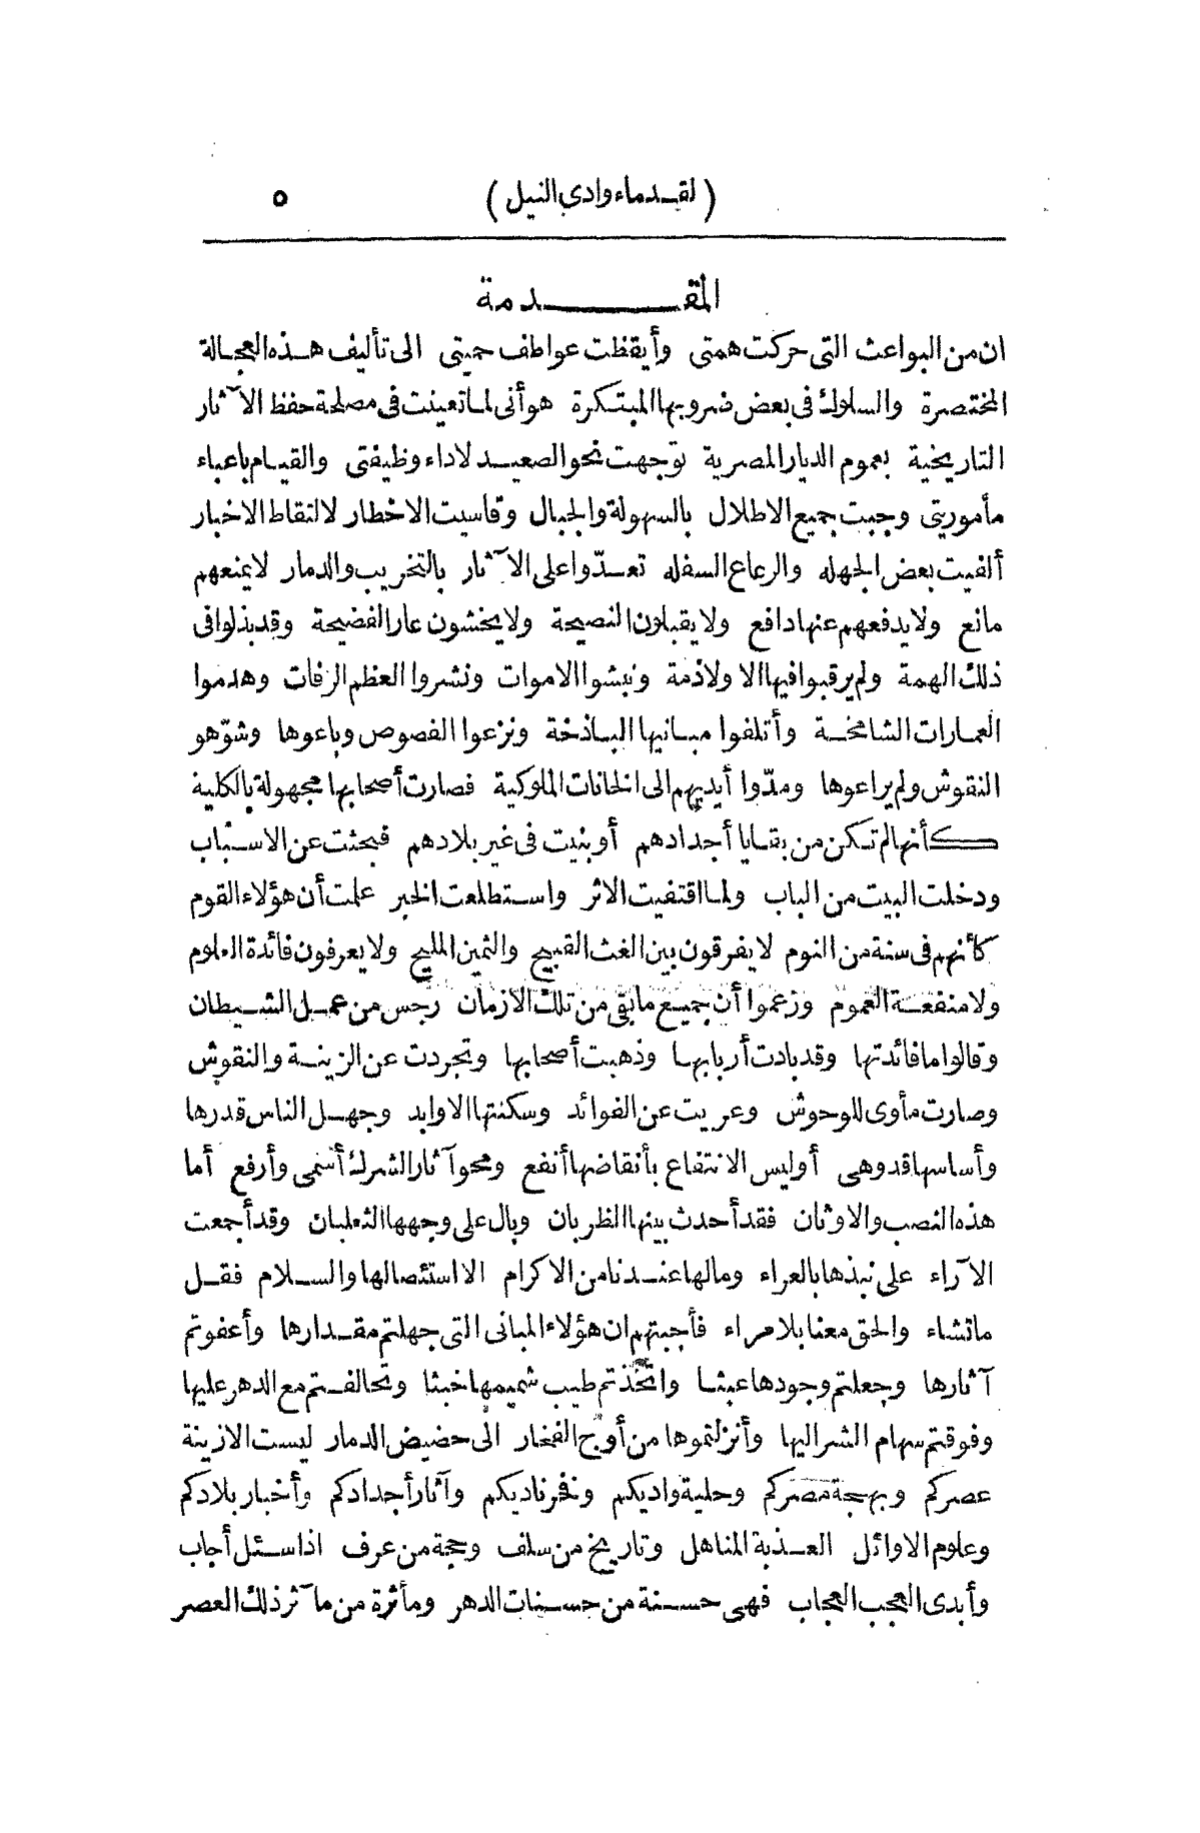 (لقدماء وادى النيل) ٥
المقدمة
ان من البواعث التى حركت همتى وأيقظت عواطف حميتى الى تأليف هذه العجالة
المختصرة والسلوك فى بعض ضروبها المبتكرة هو أنى لما تعينت فى مصلحة حفظ الآثار
التاريخية بعموم الديار المصرية توجهت نحو الصعيد لاداء وظيفتى والقيام باعباء
مأموريتى وجبت جميع الاطلال بالسهولة والجبال وقاسيت الاخطار لالتقاط الاخبار
ألفيت بعض الجهله والرعاع السفله تعدّوا على الآثار بالتخريب والدمار لا يمنعهم
مانع ولا يدفعهم عنها دافع ولا يقبلون النصيحة ولا يخشون عار الفضيحة وقد بذلوا فى
ذلك الهمة ولم يرقبوا فيها الا ولا ذمة ونبشوا الاموات ونشروا العظم الرفات وهدموا
العمارات الشامخة وأتلفوا مبانيها الباذخة ونزعوا الفصوص وباعوها وشوّهو
النقوش ولم يراعوها ومدّوا أيديهم الى الخانات الملوكية فصارت أصحابها مجهولة بالكلية
كأنها لم تكن من بقايا أجدادهم أو بنيت فى غير بلادهم فبحثت عن الاسباب
ودخلت البيت من الباب ولما اقتفيت الاثر واستطلعت الخبر علمت أن هؤلاء القوم
كأنهم فى سنة من النوم لا يفرقون بين الغث القبيح والثمين المليح ولا يعرفون فائدة العلوم
ولا منفعة العموم وزعموا أن جميع ما بقى من تلك الازمان رجس من عمل الشيطان
وقالوا ما فائدتها وقد بادت أربابها وذهبت أصحابها وتجردت عن الزينة والنقوش
وصارت مأوى للوحوش وعريت عن الفوائد وسكنتها الاوابد وجهل الناس قدرها
وأساسها قد وهى أو ليس الانتفاع بأنقاضها أنفع ومحو آثار الشرك أسمى وأرفع أما
هذه النصب والاوثان فقد أحدث بينها الظربان وبال على وجهها الثعلبان وقد أجمعت
الآراء على نبذها بالعراء وما لها عندنا من الاكرام الا استئصالها والسلام فقل
ما تشاء والحق معنا بلا مراء فأجبتهم ان هؤلاء المبانى التى جهلتم مقدارها وأعفوتم
آثارها وجعلتم وجودها عبثا واتخذتم طيب شميمها خبثا وتحالفتم مع الدهر عليها
وفوقتم سهام الشر اليها وأنزلتموها من أوج الفخار الى حضيض الدمار ليست الا زينة
عصركم وبهجة مصركم وحلية واديكم وفخر ناديكم وآثار أجدادكم وأخبار بلادكم
وعلوم الاوائل العذبة المناهل وتاريخ من سلف وحجة من عرف اذا سئل أجاب
وأبدى العجب العجاب فهى حسنة من حسنات الدهر ومأثرة من مآثر ذلك العصر